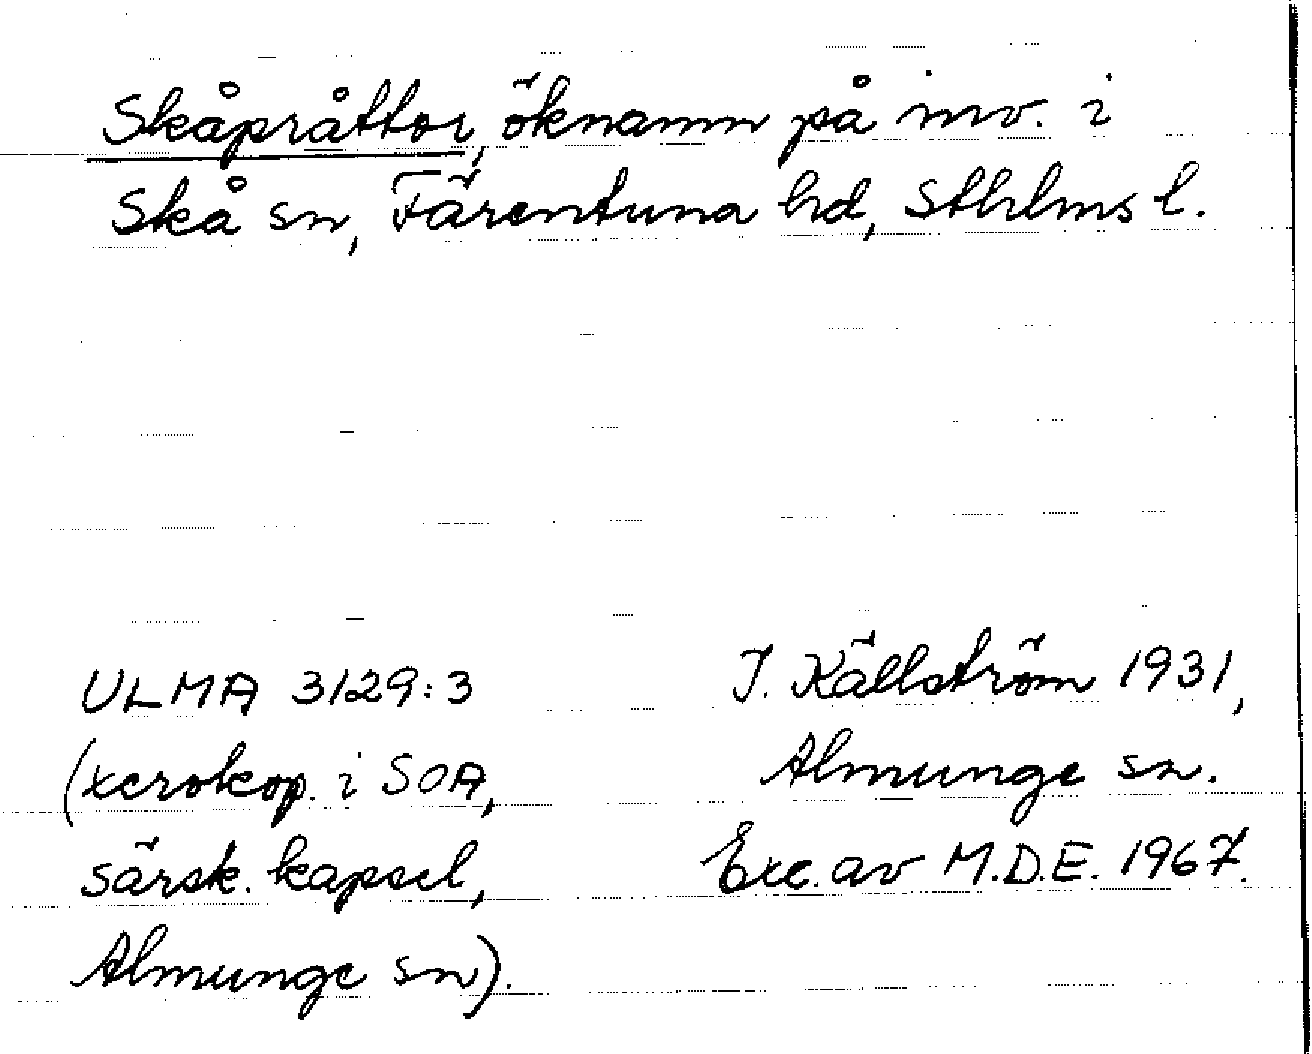 Skåpråttor, öknamn på inv. i
Skå sn, Färentuna hd, Sthlms l.
ULMA 3129:3
(xerokop. i SOA,
särsk. kapsel,
Almunge sn).
J. Källström 1931,
Almunge sn.
Exc. av M.D.E. 1967.